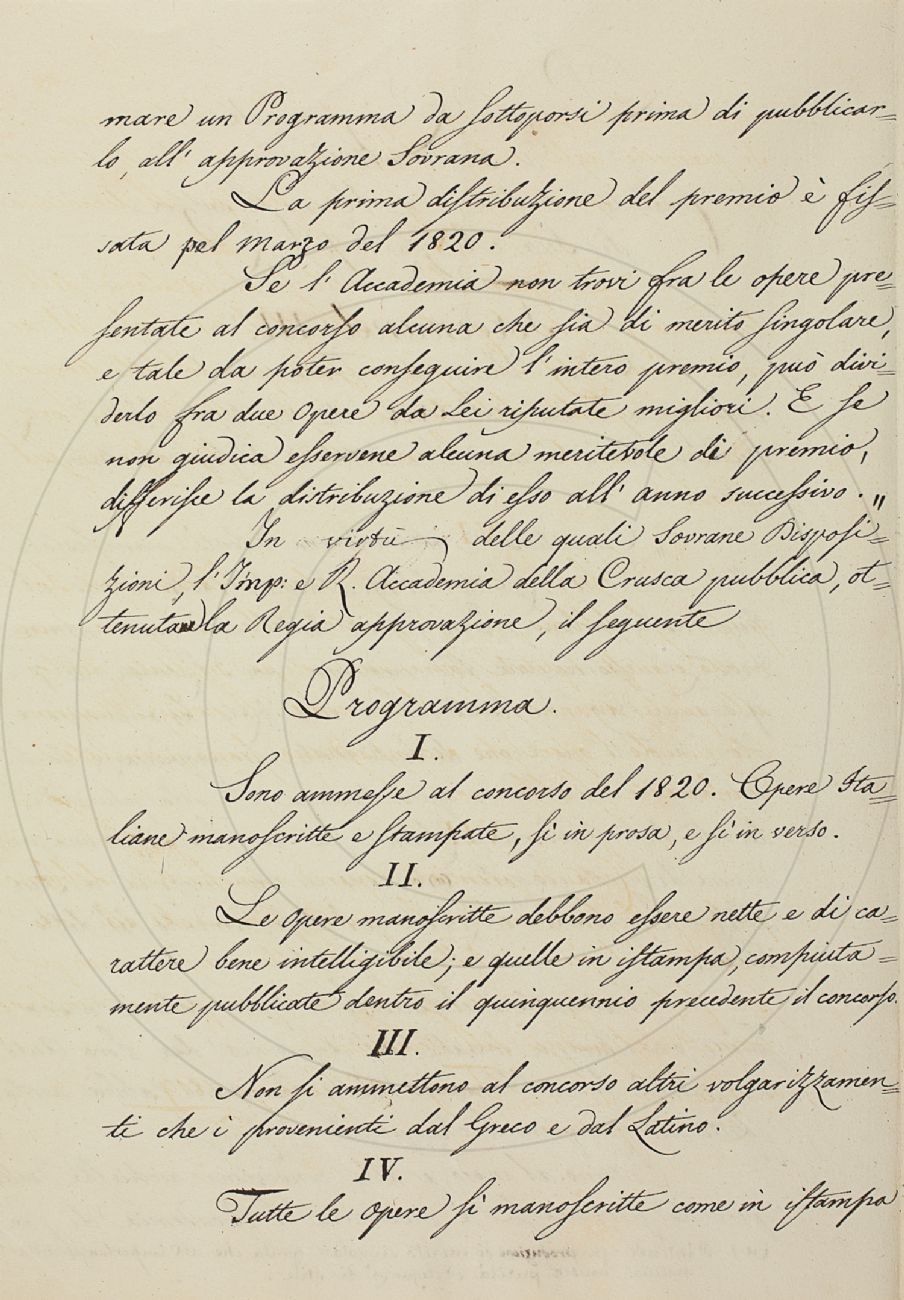 mare un Programma da sottoporsi prima di pubblicar=
lo, all' approvazione Sovrana.
La prima distribuzione del premio è fis=
sata pel marzo del 1820.
Se l' Accademia non trovi fra le opere pre=
sentate al concorso alcuna che sia di merito singolare,
e tale da poter conseguire l' intero premio, può divi=
derlo fra due opere da Lei riputate migliori. E se
non giudica esservene alcuna meritevole di premio,
differisce la distribuzione di esso all' anno successivo. "
In virtù delle quali Sovrane Disposi=
zioni, l' Imp: e R. Accademia della Crusca pubblica, ot=
tenutane la Regia approvazione, il seguente
Programma.
I.
Sono ammesse al concorso del 1820. Opere Ita=
liane manoscritte e stampate, sì in prosa, e sì in verso.
II.
Le opere manoscritte debbono essere nette e di ca=
rattere bene intelligibile; e quelle in istampa, compiuta=
mente pubblicate dentro il quinquennio precedente il concorso.
III.
Non si ammettono al concorso altri volgarizzamen=
ti che i provenienti dal Greco e dal Latino.
IV.
Tutte le opere sì manoscritte come in istampa